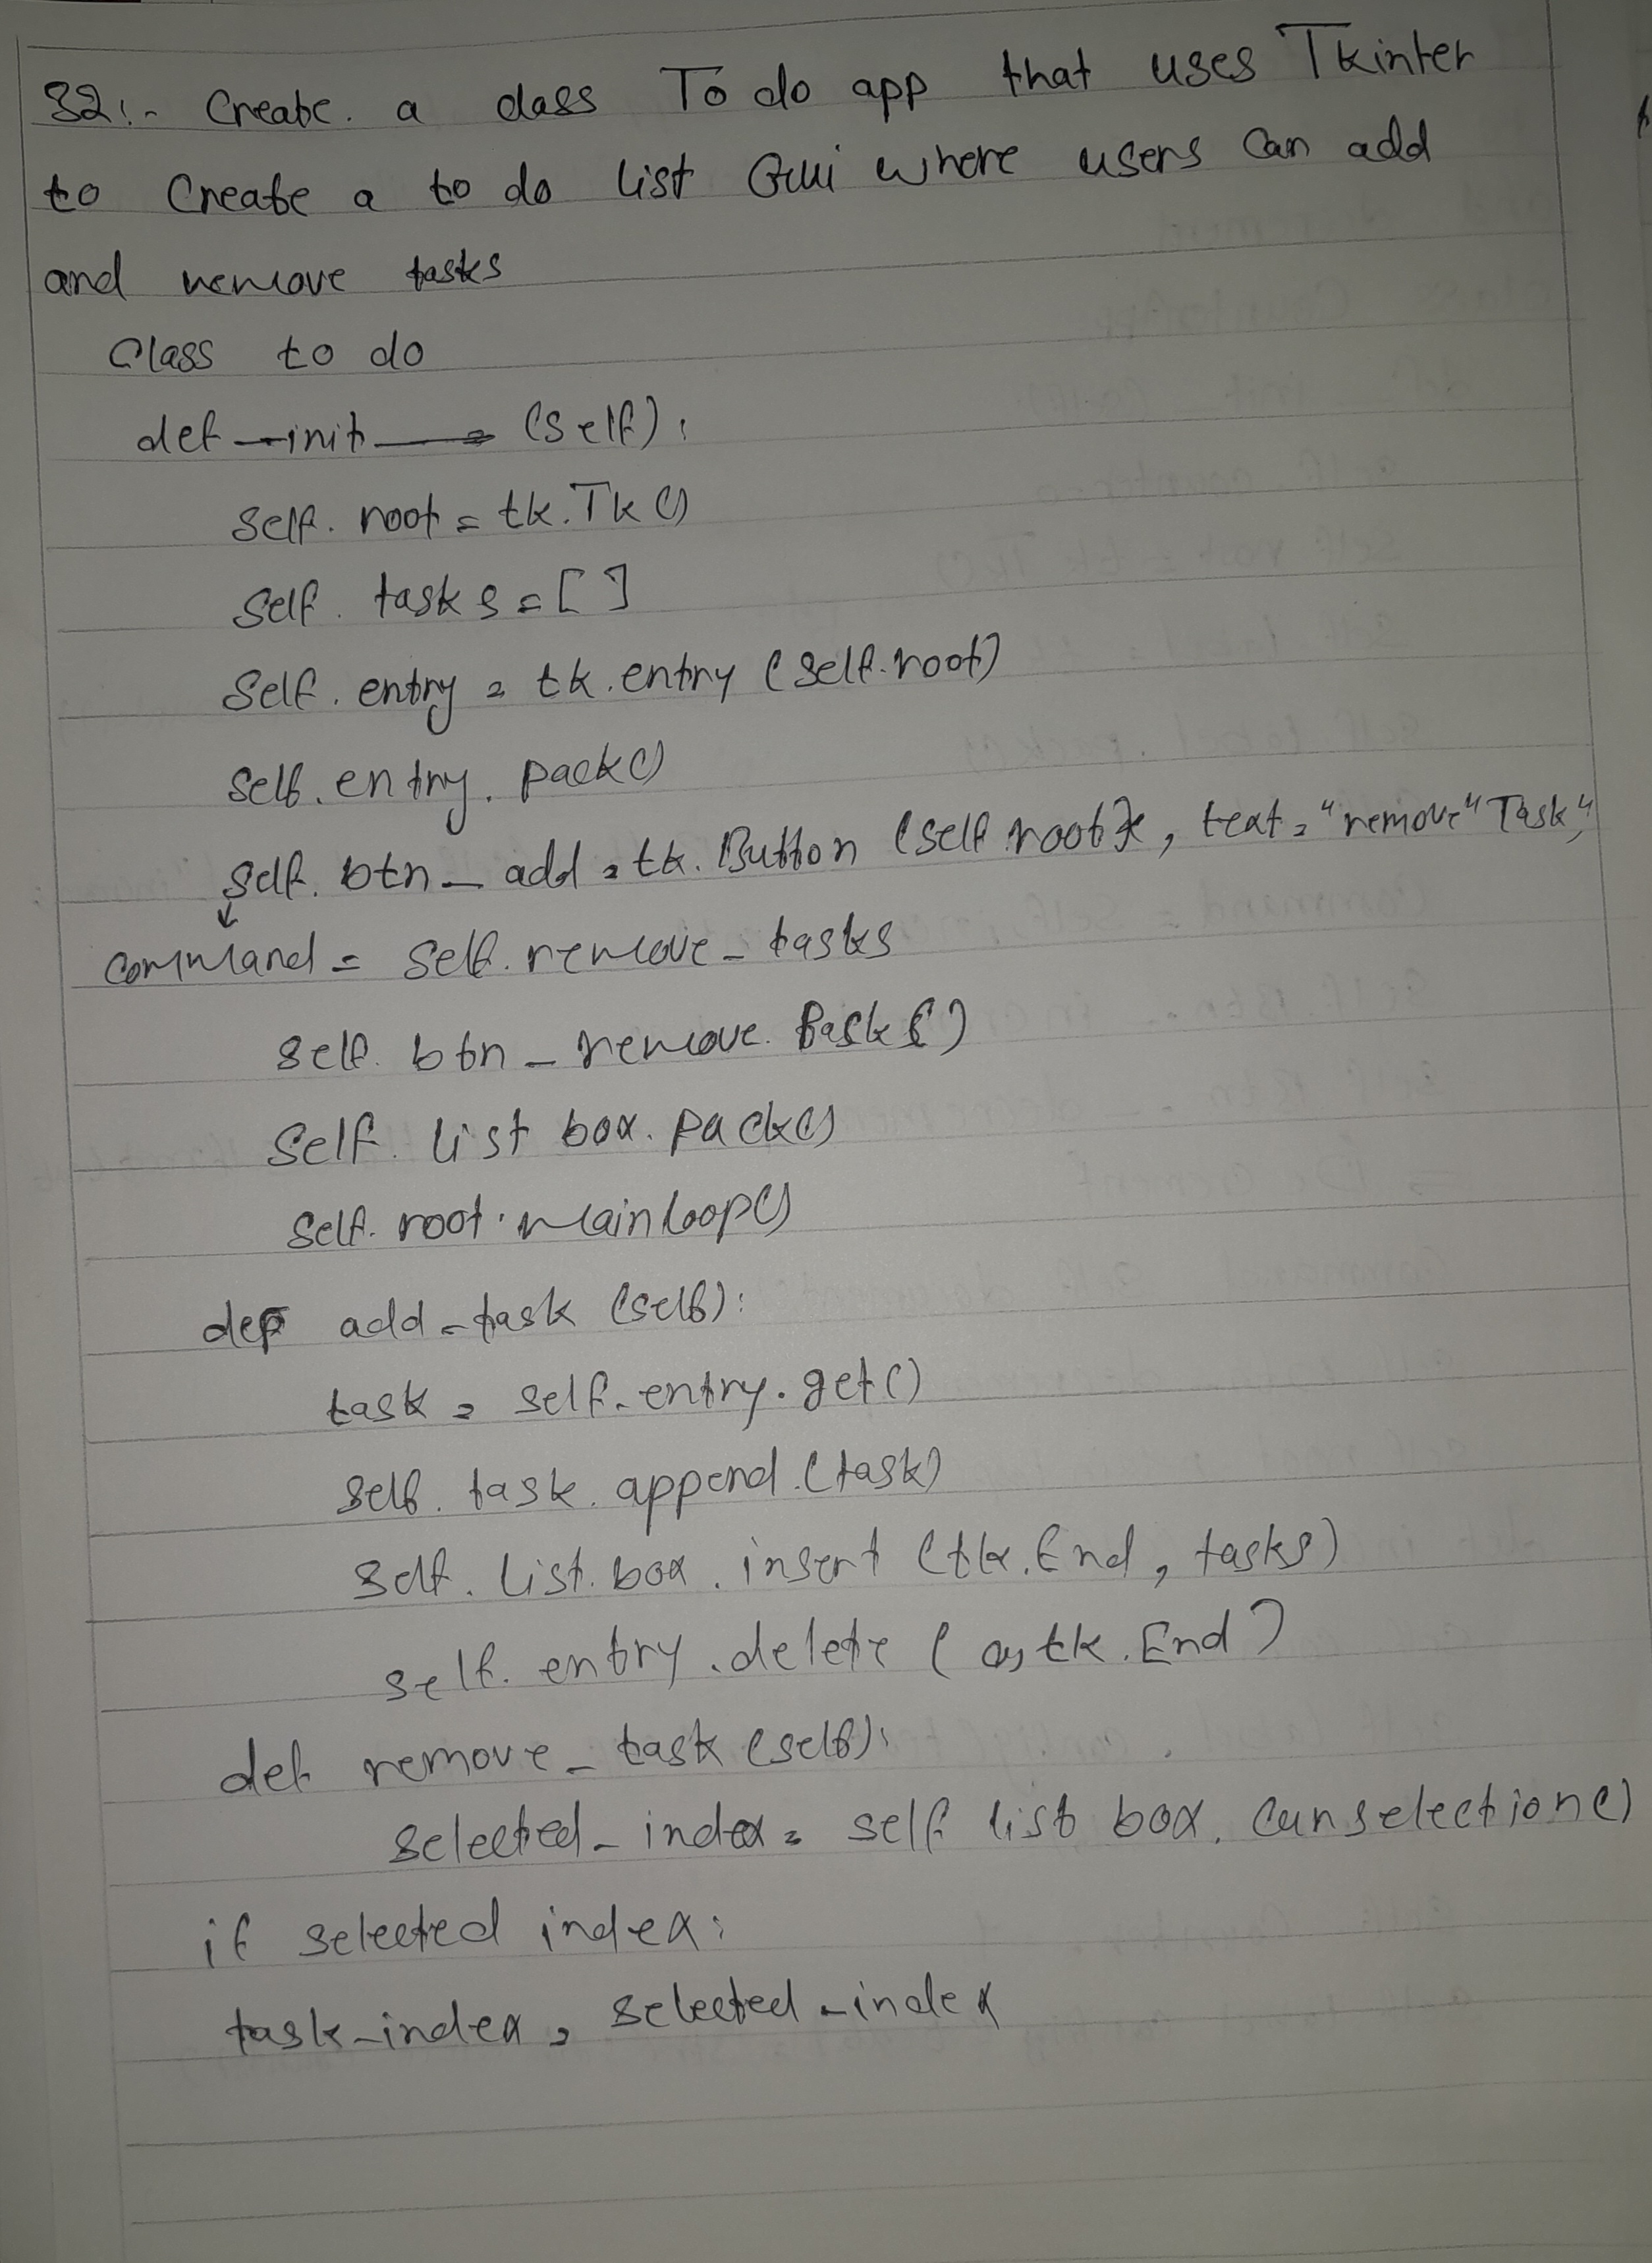 32:- Create. a class To do app that uses Tkinter
to Create a to do list Gui where users can add
and remove tasks
Class to do
def __init__ (self):
self. root = tk.Tk()
self. tasks = []
self. entry = tk.entry (self.root)
self. entry. pack()
self. btn_ add = tk. Button (self root), text = "remove" Task",
command = self. remove_ tasks
self. btn _ remove.
self. list box. pack()
self. root. mainloop()
def add_task (self):
task = self. entry. get()
self. task. append. (task)
self. list. box. insert (tk. End, tasks)
self. entry. delete ( tk. End)
def remove_ task (self):
selected_ index = self list box. Curselection()
if selected index:
task_index = selected_index